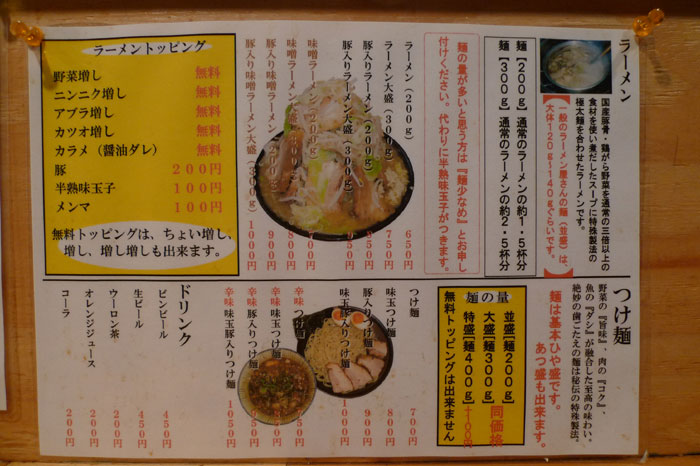 ラーメン
国産豚骨・鶏がら野菜を通常の三倍以上の
食材を使い煮だしたスープに特殊製法の
極太麺を合わせたラーメンです。
【一般のラーメン屋さんの麺(並盛)は、
大体120g~140gぐらいです。】
麺【200g】通常のラーメンの約1・5杯分
麺【300g】通常のラーメンの約2・5杯分
麺の量が多いと思う方は『麺少なめ』とお申し
付けください。代わりに半熟味玉子がつきます。
ラーメン(200g) 650円
ラーメン大盛(300g) 750円
豚入りラーメン(200g) 850円
豚入りラーメン大盛(300g) 950円
味噌ラーメン(200g) 700円
味噌ラーメン大盛(300g) 800円
豚入り味噌ラーメン(200g) 900円
豚入り味噌ラーメン大盛(300g) 1000円
ラーメントッピング
野菜増し 無料
ニンニク増し 無料
アブラ増し 無料
カツオ増し 無料
カラメ(醤油ダレ) 無料
豚 200円
半熟味玉子 100円
メンマ 100円
無料トッピングは、ちょい増し、
増し、増し増しも出来ます。
つけ麺
野菜の『旨味』、肉の『コク』、
魚の『ダシ』が融合した至高の味わい。
絶妙の歯ごたえの麺は秘伝の特殊製法。
麺は基本ひや盛です。
あつ盛も出来ます。
麺の量
並盛【麺200g】
大盛【麺300g】同価格
特盛【麺400g】+100円
無料トッピングは出来ません
つけ麺 700円
味玉つけ麺 800円
豚入りつけ麺 900円
味玉豚入りつけ麺 1000円
辛味つけ麺
辛味味玉つけ麺
辛味豚入りつけ麺
辛味味玉豚入りつけ麺 1050円
ドリンク
ビンビール 450円
生ビール 450円
ウーロン茶 200円
オレンジジュース 200円
コーラ 200円